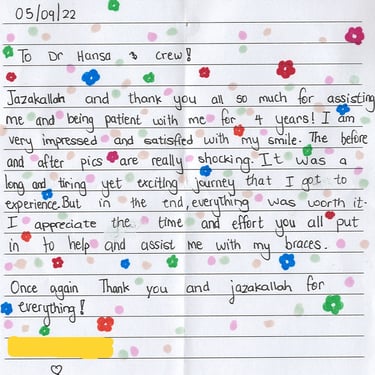 05/09/22
To Dr Hansa & crew!
Jazakallah and thank you all so much for assisting
me and being patient with me for 4 years! I am
very impressed and satisfied with my smile. The before
and after pics are really shocking. It was a
long and tiring yet exciting journey that I got to
experience. But in the end, everything was worth it.
I appreciate the time and effort you all put
in to help and assist me with my braces.
Once again Thank you and jazakallah for
everything!